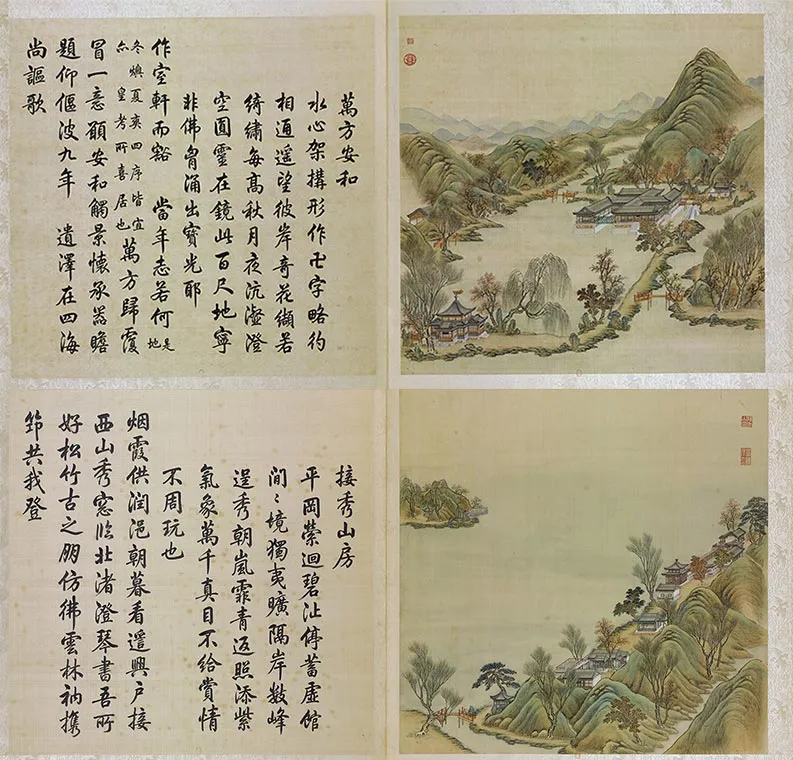 萬方安和
水心架構形作卍字略彴
相通遥望彼岸奇花纈若
綺繡每髙秋月夜沆瀣澄
空圓靈在鏡此百尺地寧
非佛胷涌出寳光耶
作室軒而豁 當年志若何 是地
冬燠夏爽四序皆宜亦 皇考所喜居也 萬方歸覆
冒一意願安和觸景懷承器瞻
題仰偃波九年 遺澤在四海
尚謳歌
接秀山房
平岡縈迴碧沚停蓄虚館
間〻境獨夷曠隔岸數峰
逞秀朝嵐霏青返照添紫
氣象萬千真目不給賞情
不周玩也
烟霞供潤浥朝暮看遥興户接
西山秀窓臨北渚澄琴書吾所
好松竹古之朋仿彿雲林衲攜
笻共我登